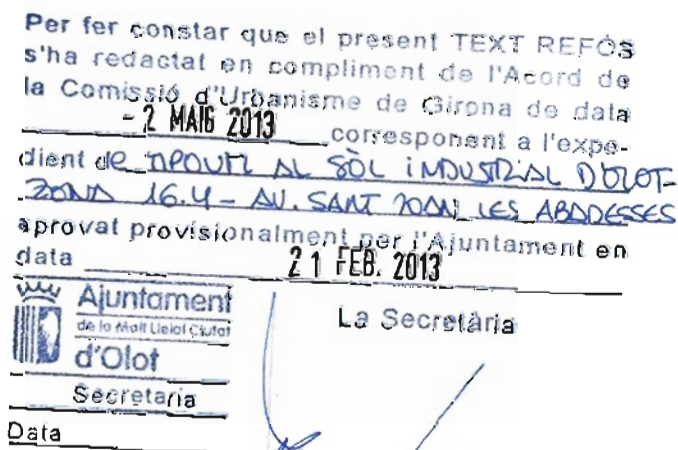 Per fer constar que el present TEXT REFÓS
s'ha redactat en compliment de l'Acord de
la Comissió d'Urbanisme de Girona de data
- 2 MAIG 2013 corresponent a l'expe-
dient de AL SÒL INDUSTRIAL D'OLOT-
ZONA 16.4 - AV. SANT JOAN LES ABADESSES
aprovat provisionalment per l'Ajuntament en
data 21 FEB. 2013
Ajuntament
de la Molt Lleial Ciutat
d'Olot
La Secretària
Secretaria
Data